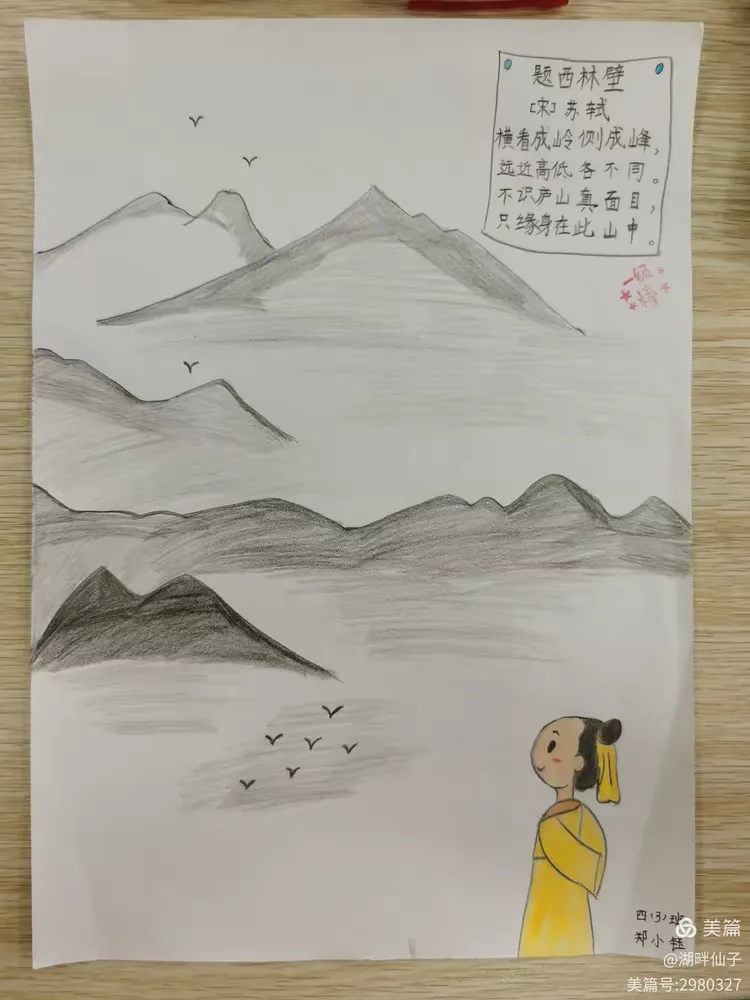 题西林壁
[宋] 苏轼
横看成岭侧成峰，
远近高低各不同。
不识庐山真面目，
只缘身在此山中。
一级
棒
四(3)班
郑小钰
美篇
@湖畔仙子
美篇号:2980327